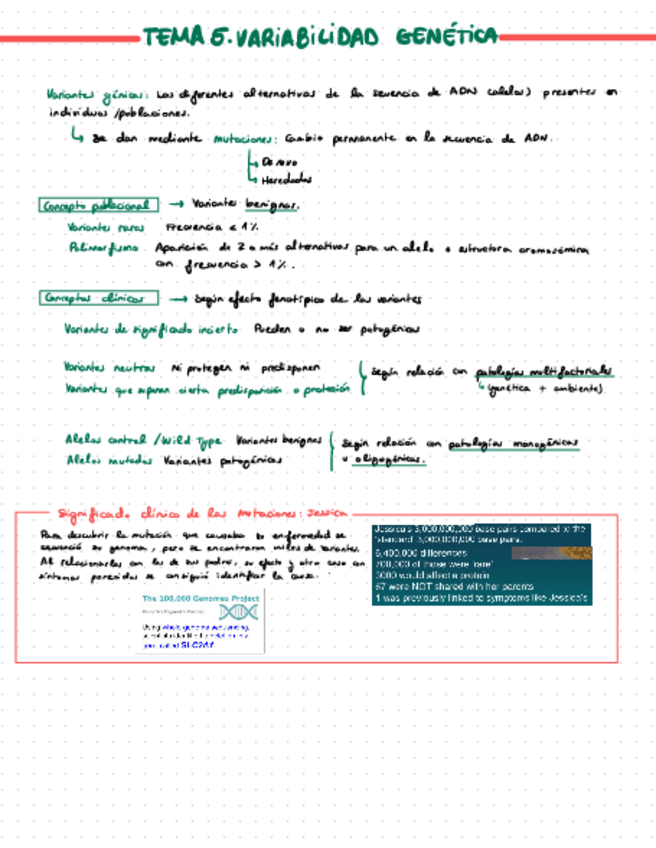 TEMA 5. VARIABILIDAD GENÉTICA
Variantes génicas: Las diferentes alternativas de la secuencia de ADN (alelos) presentes en
individuos /poblaciones.
↳ Se dan mediante mutaciones: Cambio permanente en la secuencia de ADN.
↳ De novo
↳ Heredadas
Concepto poblacional → Variantes benignas.
Variantes raras Frecuencia < 1%
Polimorfismo Aparición de 2 o más alternativas para un alelo o estructura cromosómica
con frecuencia > 1%.
Conceptos clínicos → Según efecto fenotípico de las variantes
Variantes de significado incierto Pueden o no ser patogénicas
Variantes neutras Ni protegen ni predisponen
Variantes que suponen cierta predisposición o protección
Según relación con patologías multifactoriales
↳ (genética + ambiente)
Alelos control /Wild Type Variantes benignas
Alelos mutados Variantes patogénicas
Según relación con patologías monogénicas
u oligogénicas.
Significado clínico de las Mutaciones: Jessica
Para descubrir la mutación que causaba su enfermedad se
secuenció su genoma, pero se encontraron miles de variantes.
Al relacionarlas con las de sus padres, su efecto y otro caso con
síntomas parecidos se consiguió identificar la causa.
Jessica's 3,000,000,000 base pairs compared to the
"standard" 3,000,000,000 base pairs.
6,400,000 differences
700,000 of those were 'rare'
3000 would affect a protein
67 were NOT shared with her parents
1 was previously linked to symptoms like Jessica's
The 100,000 Genomes Project
Using whole genome sequencing,
gene called SLC2A1